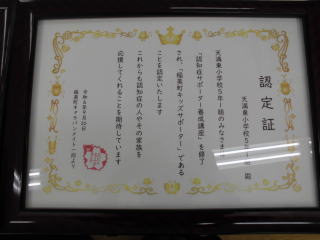 認定証
天満東小学校5年1組 殿
天満東小学校5年1組のみなさまは
「認知症サポーター養成講座」を修了
され、「稲美町キッズサポーター」である
ことを認定いたします
これからも認知症の人やその家族を
応援してくれることを期待しています
稲美町キャラバンメイト一同より